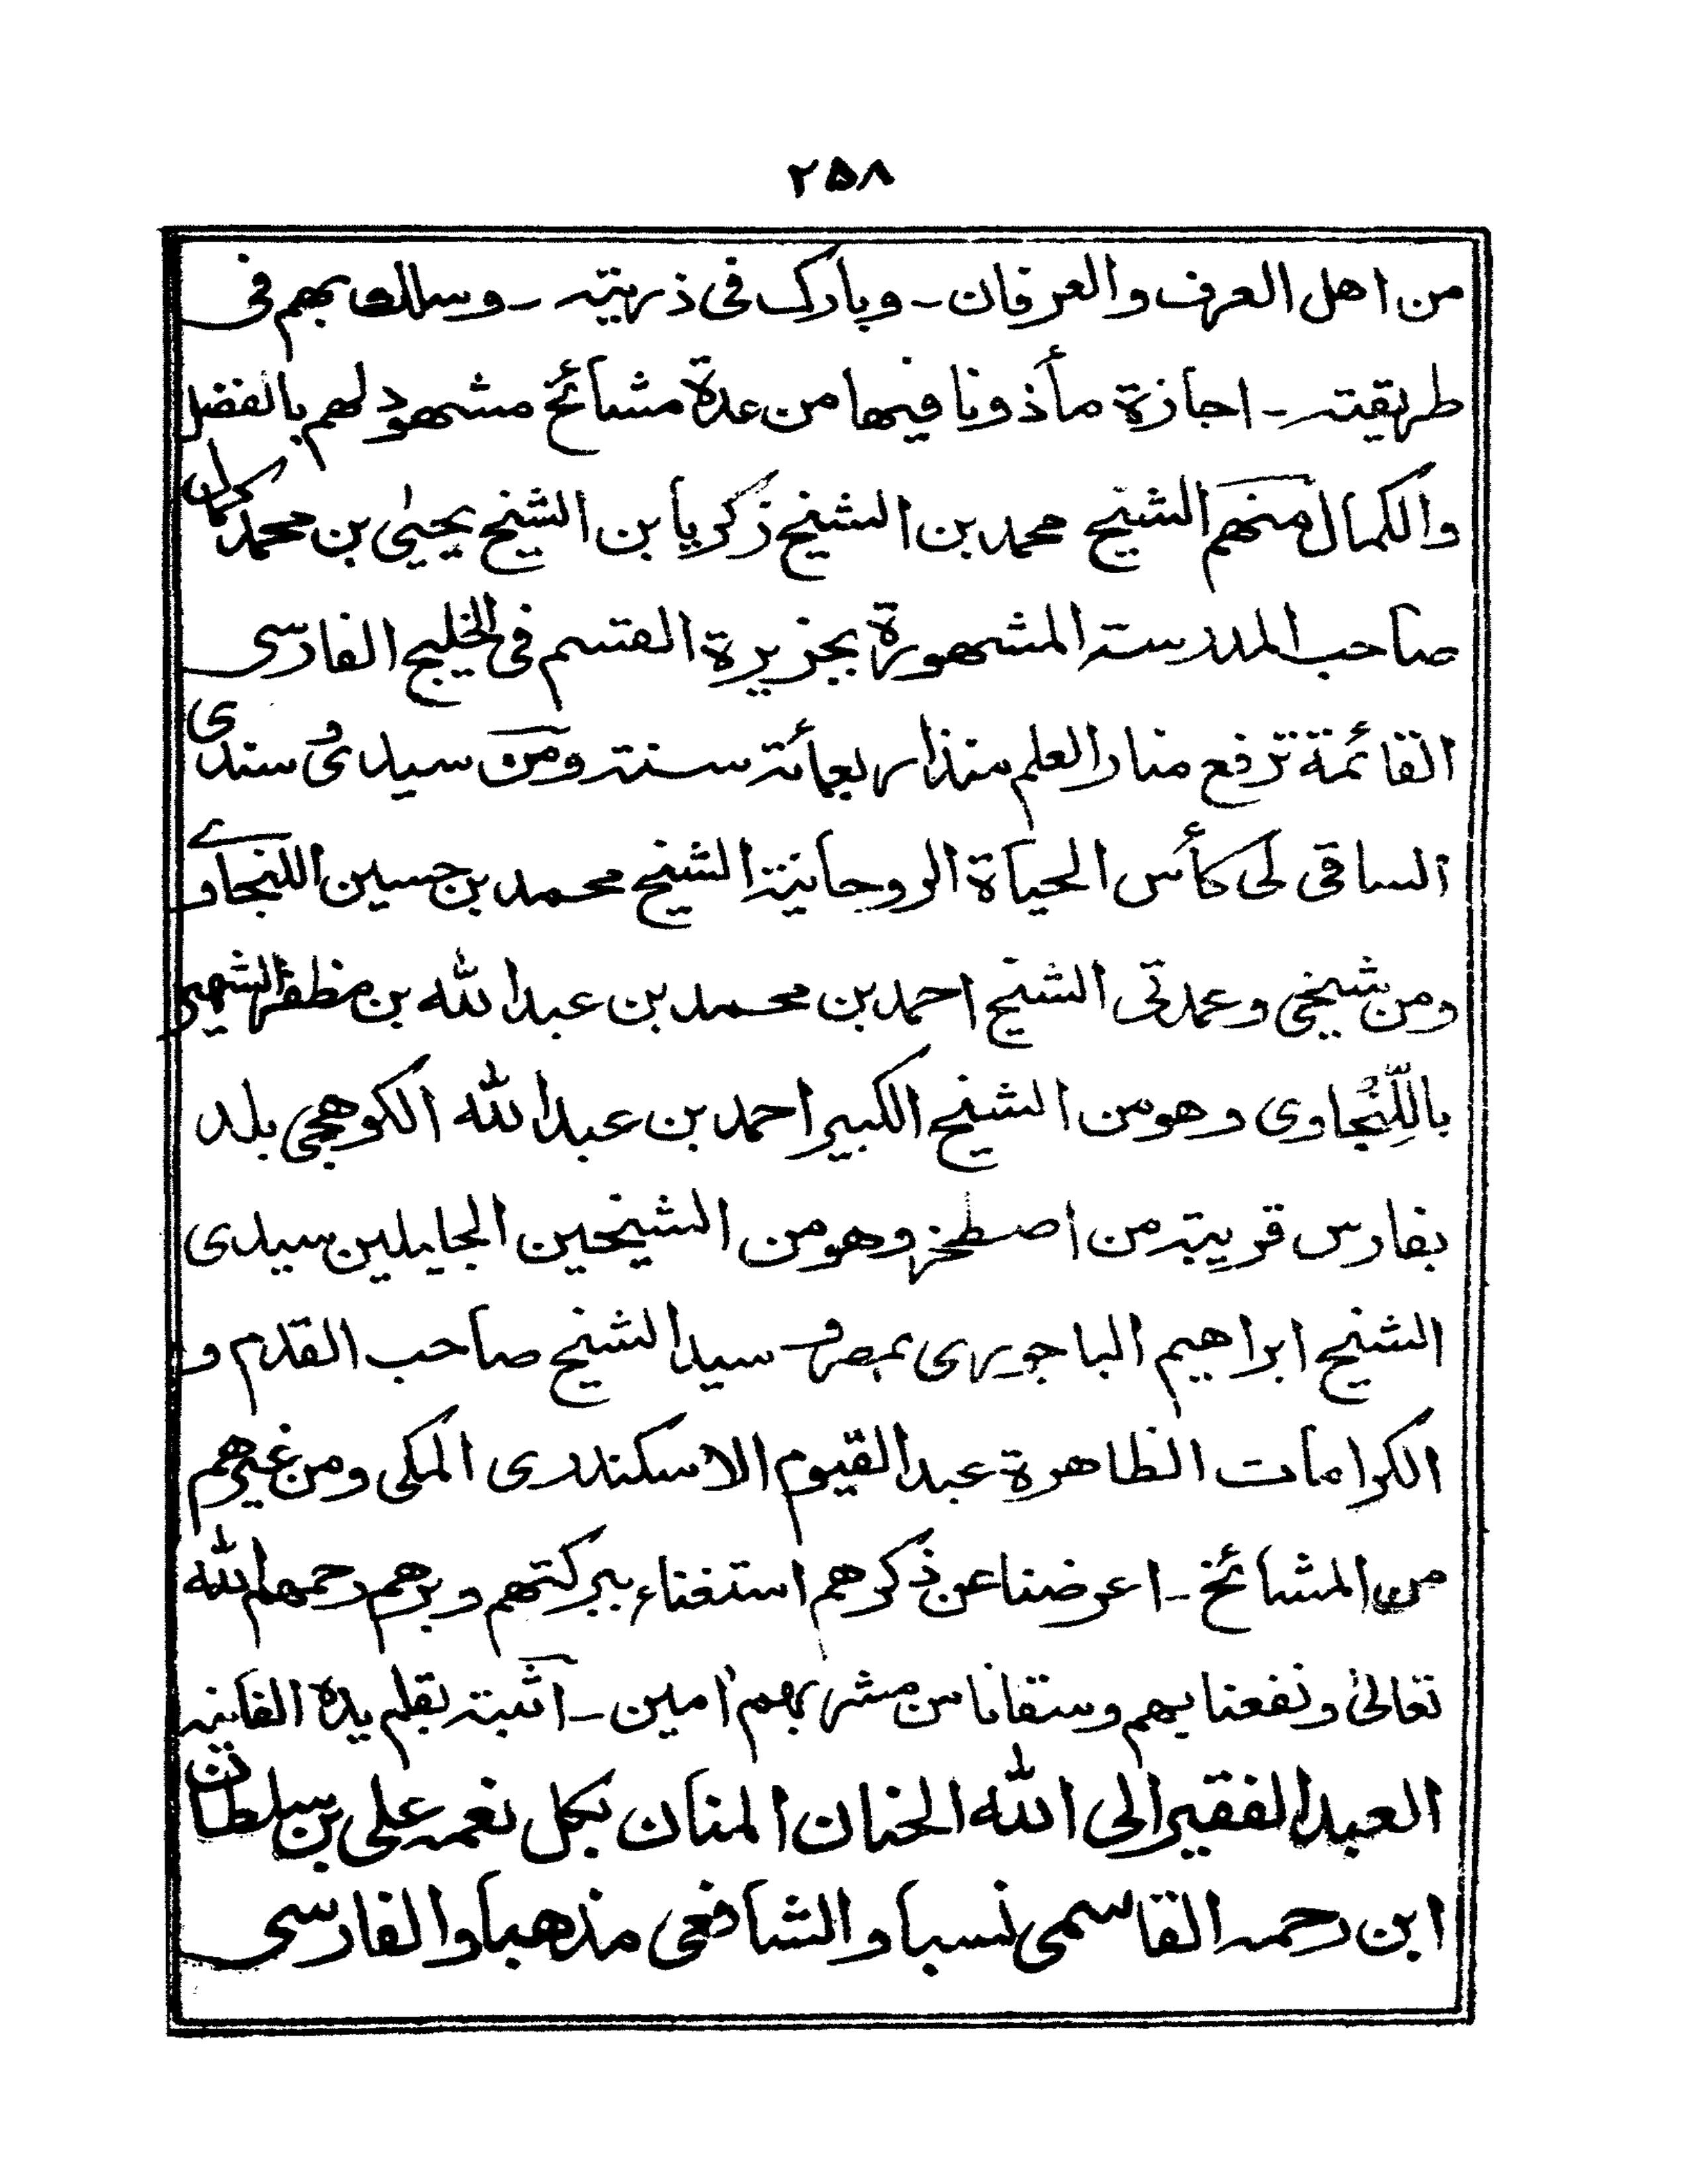 ۲۵۸
من اهل العرف والعرفان - وبارك فى ذريته - وسلك بهم فى
طريقته - اجازة مأذونا فيها من عدة مشائخ مشهود لهم بالفضل
والكمال منهم الشيخ محمد بن الشيخ زكريا بن الشيخ يحيىٰ بن محمد كمال
صاحب المدرسته المشهورة بجزيرة القسم فى الخليج الفارسى
القائمة ترفع منار العلم منذ اربعمائة سنته ومن سيدى وسندى
الساقى لى كأس الحياة الروحانية الشيخ محمد بن حسين اللنجاوے
ومن شيخى وعمدتى الشيخ احمد بن محمد بن عبدالله بن مظفر الشهير
باللِّنْجاوى وهو من الشيخ الكبير احمد بن عبدالله الكوهجى بلد
بفارس قريبته من اصطخر وهو من الشيخين الجليلين سيدى
الشيخ ابراهيم الباجورى بمصر و سيد الشيخ صاحب القدم و
الكرامات الظاهرة عبد القيوم الاسكندرى المكى ومن غيرهم
من المشائخ - اعرضنا عن ذكرهم استغناء ببركتهم وبرهم رحمهم الله
تعالىٰ ونفعنا بهم وسقانا من مشربهم امين - اثبته بقلم يده الفانيه
العبد الفقير الى الله الحنان المنان بكل نعمه على بن سلطان
ابن رحمه القاسمى نسبا والشافعى مذهبا والفارسى